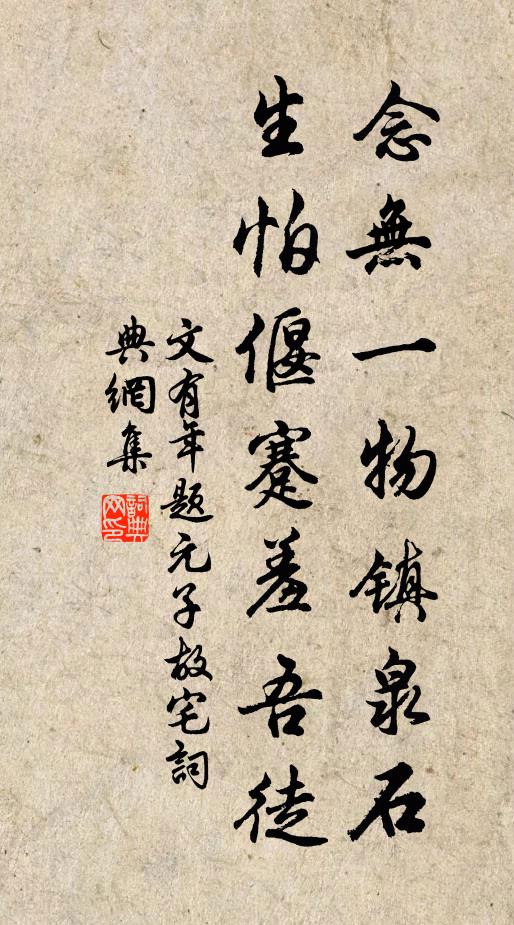 念無一物镇泉石
生怕偃蹇羞吾徒
文有年题元子故宅詞
典網集
詞典網印